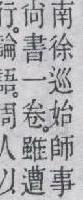 南徐巡始師事
尚書一卷雖遭
行論語問人以